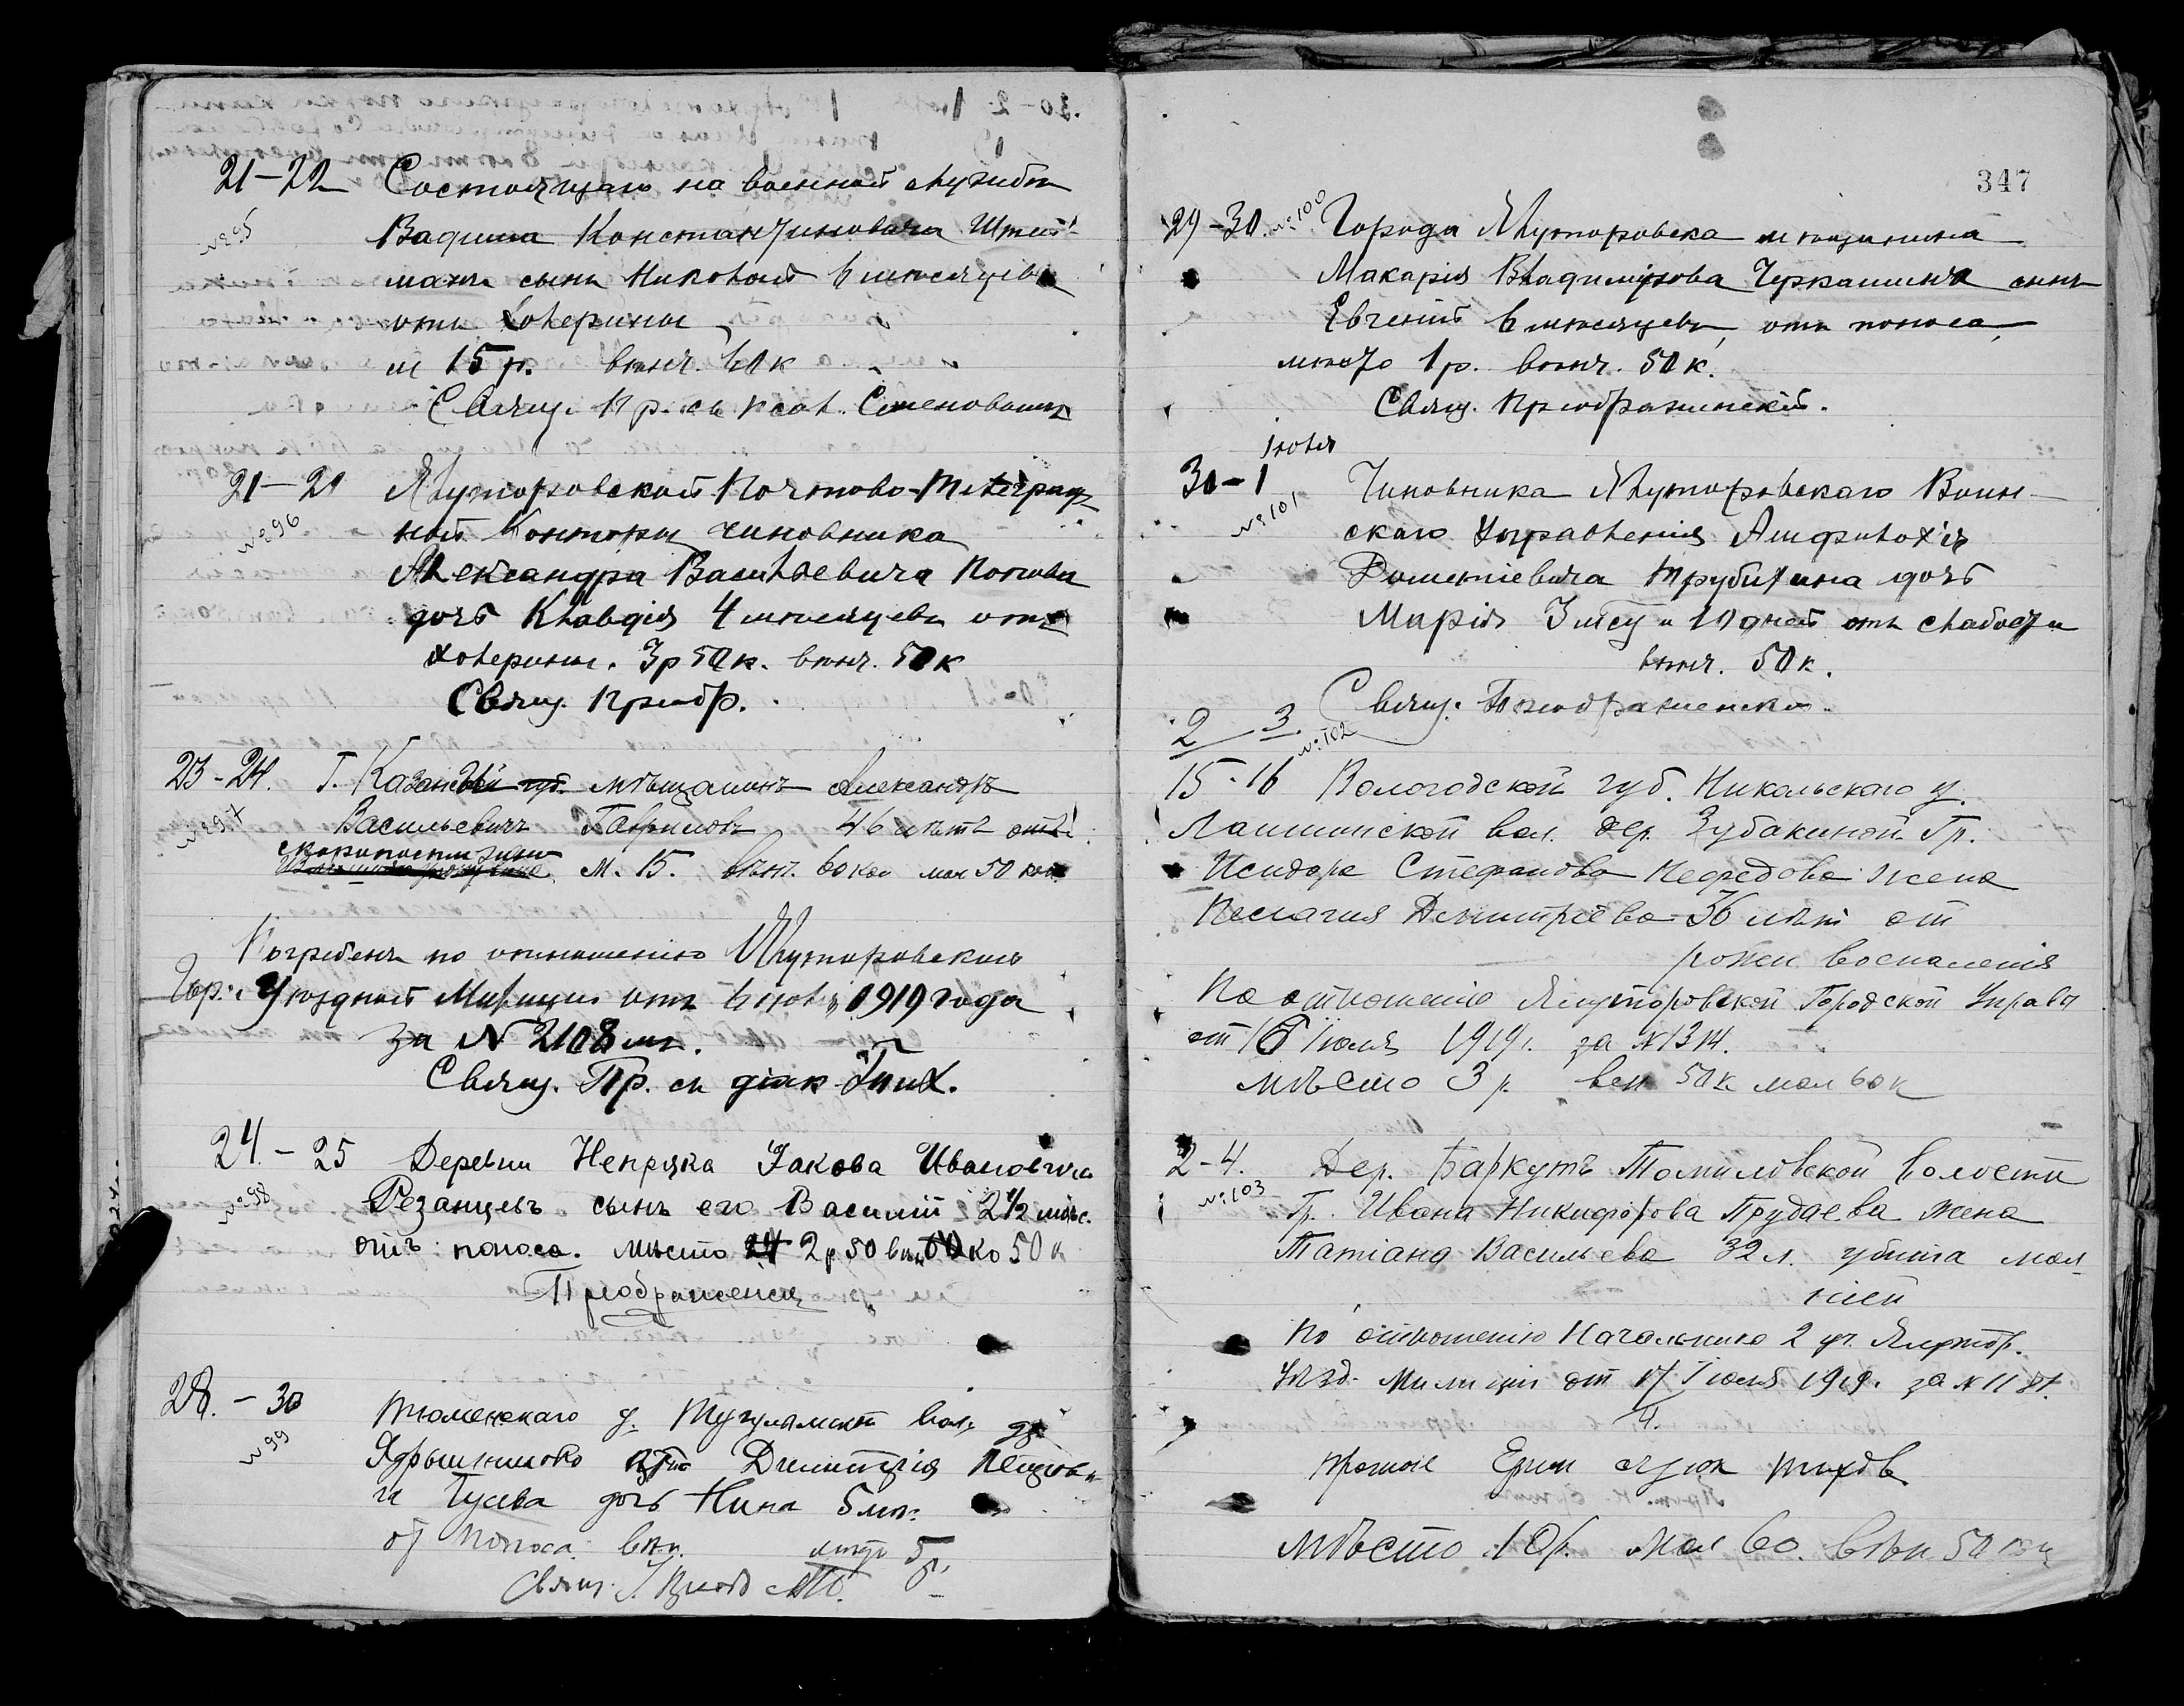 21-22 Состоящаго на военной службѣ
№ 95
Вадима Константиновича Штей-
мана сынъ Николай 6 мѣсяцевъ
отъ холерины
м 15 р. вѣнч. 60 к
Свящ. Пр. съ псал. Стеновымъ
21-21 Ялуторовской Почтово-Телеграф-
№ 96
ной Конторы чиновника
Александра Васильевича Попова
дочь Клавдія 4 мѣсяцевъ отъ
холерины. 3 р 50 к. вѣнч. 50 к
Свящ. Преобр.
23-24. Г. Казань мѣщанинъ Александръ
№ 97
Васильевичъ Гавриловъ 46 лѣтъ отъ
скоропостижно
М. 15. вѣнч. 60 коп мол 50 коп
Погребенъ по отношенію Ялуторовской
Гор. Уѣздной Милиціи отъ 6 іюля 1919 года
за № 2108 мъ.
Свящ. Пр. съ діак Тих.
24-25 Деревни Непряка Іакова Ивановича
№ 98
Резанцевъ сынъ его Василій 2 1/2 мѣс.
отъ поноса. Мѣсто 2 р 50 вѣн 60 ко 50 к
Преображенск
28.-30 Тюменскаго у. Тугулымской вол. д.
№ 99
Ядрышниково Димитрія Петров
ча Гусева дочь Нина 5 мѣс.
от поноса. вѣн. мѣсто 5 р.
Свящ. І. Преоб
347
29-30. № 100 Города Ялуторовска мѣщанина
Макарія Владимірова Черкашина сынъ
Евгеній 6 мѣсяцевъ, отъ поноса,
мѣсто 1 р. вѣнч. 50 к.
Свящ. Преображенскій.
Іюля
30-1 Чиновника Ялуторовскаго Воин-
№ 101
скаго Управленія Амфилохія
Дометіевича Трубицина дочь
Марія 3 мѣс. и 10 дней отъ слабости
вѣнч. 50 к.
Свящ. Преображенскій.
2 3. № 102
15-16 Вологодской губ. Никольскаго у.
вол. дер. Зубакиной Гр.
Исидора Стефанова Нефедова жена
Пелагия Димитріева 36 лѣт от
рожен. воспаленія
По отношенію Ялуторовской Городской Управы
от 16 Іюля 1919 г. за № 1314.
мѣсто 3 р. вен 50 к мол 60 к
2-4. Дер. Баркутъ Томиловской волости
№ 103
Гр. Ивана Никифорова Прудаева жена
Татіана Васильева 32 л. убита мол-
ніей
По отношенію Начальника 2 уч. Ялутор.
Уѣзд. Милиціи от 17 Іюля 1919 г. за № 1181.
4.
мѣсто 10 р. мол 60. вѣн 50 коп